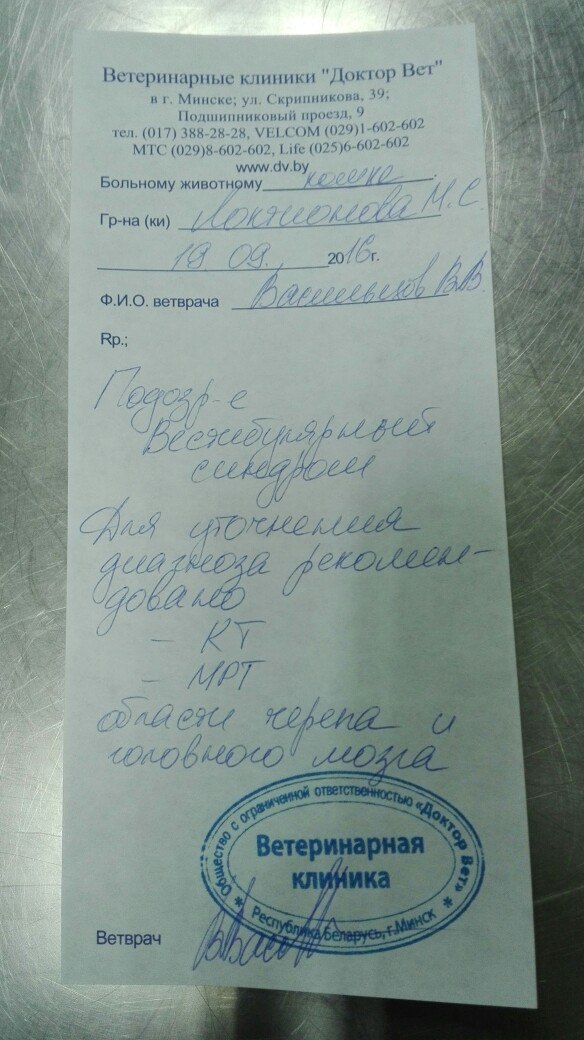 Ветеринарные клиники "Доктор Вет"
в г. Минске; ул. Скрипникова, 39;
Подшипниковый проезд, 9
тел. (017) 388-28-28, VELCOM (029)1-602-602
МТС (029)8-602-602, Life (025)6-602-602
www.dv.by
Больному животному кошка
Гр-на (ки) Локтионова М. С.
19 09. 2016г.
Ф.И.О. ветврача Васильков В.В.
Rp.;
Подозр-е
Вестибулярный
синдром
Для уточнения
диагноза рекомен-
довано
- КТ
- МРТ
области черепа и
головного мозга
Общество с ограниченной ответственностью «Доктор Вет»
Ветеринарная
клиника
Республика Беларусь, г.Минск
Ветврач